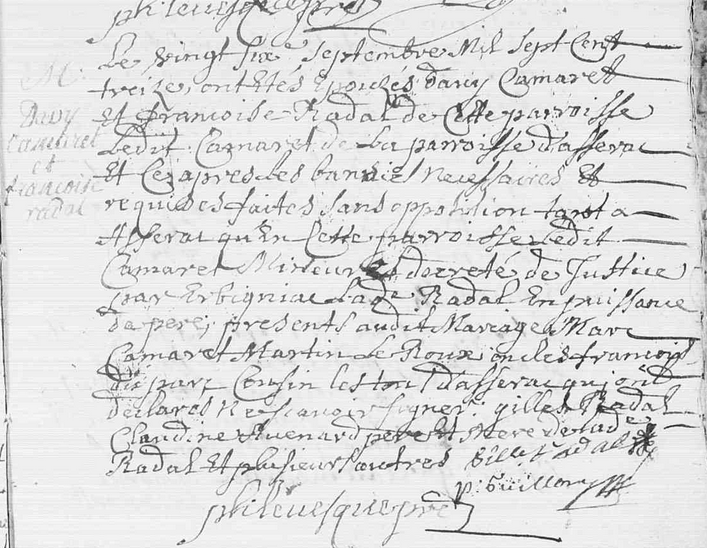 phileuesque prêt
Le vingt six septembre Mil sept Cent
treize, ont Etés Epousés davy Camaret
Et francoise Radal de Cette parroisse
Ledit Camaret de La parroisse d'asserac
Et Ce apres Les bannies Necessaires Et
requises faites sans oppossition tant a
Asserac qu'En Cette parroisse Ledit
Camaret Mineur decreté de Justice
par Erbigniac Lade Radal En puissance
de pere, presents audit Mariage Marc
Camaret Martin Le Roux oncles francois
Cousin Les tout d'asserac qui ont
declarés Ne scavoir signer. gilles Radal
Claudine Auenard pere Et Mere de lade
Radal Et plusieurs autres Gilles radal
p: Guillou
phileuesque prêt
M.
Davy
Camaret
et
francoise
radal